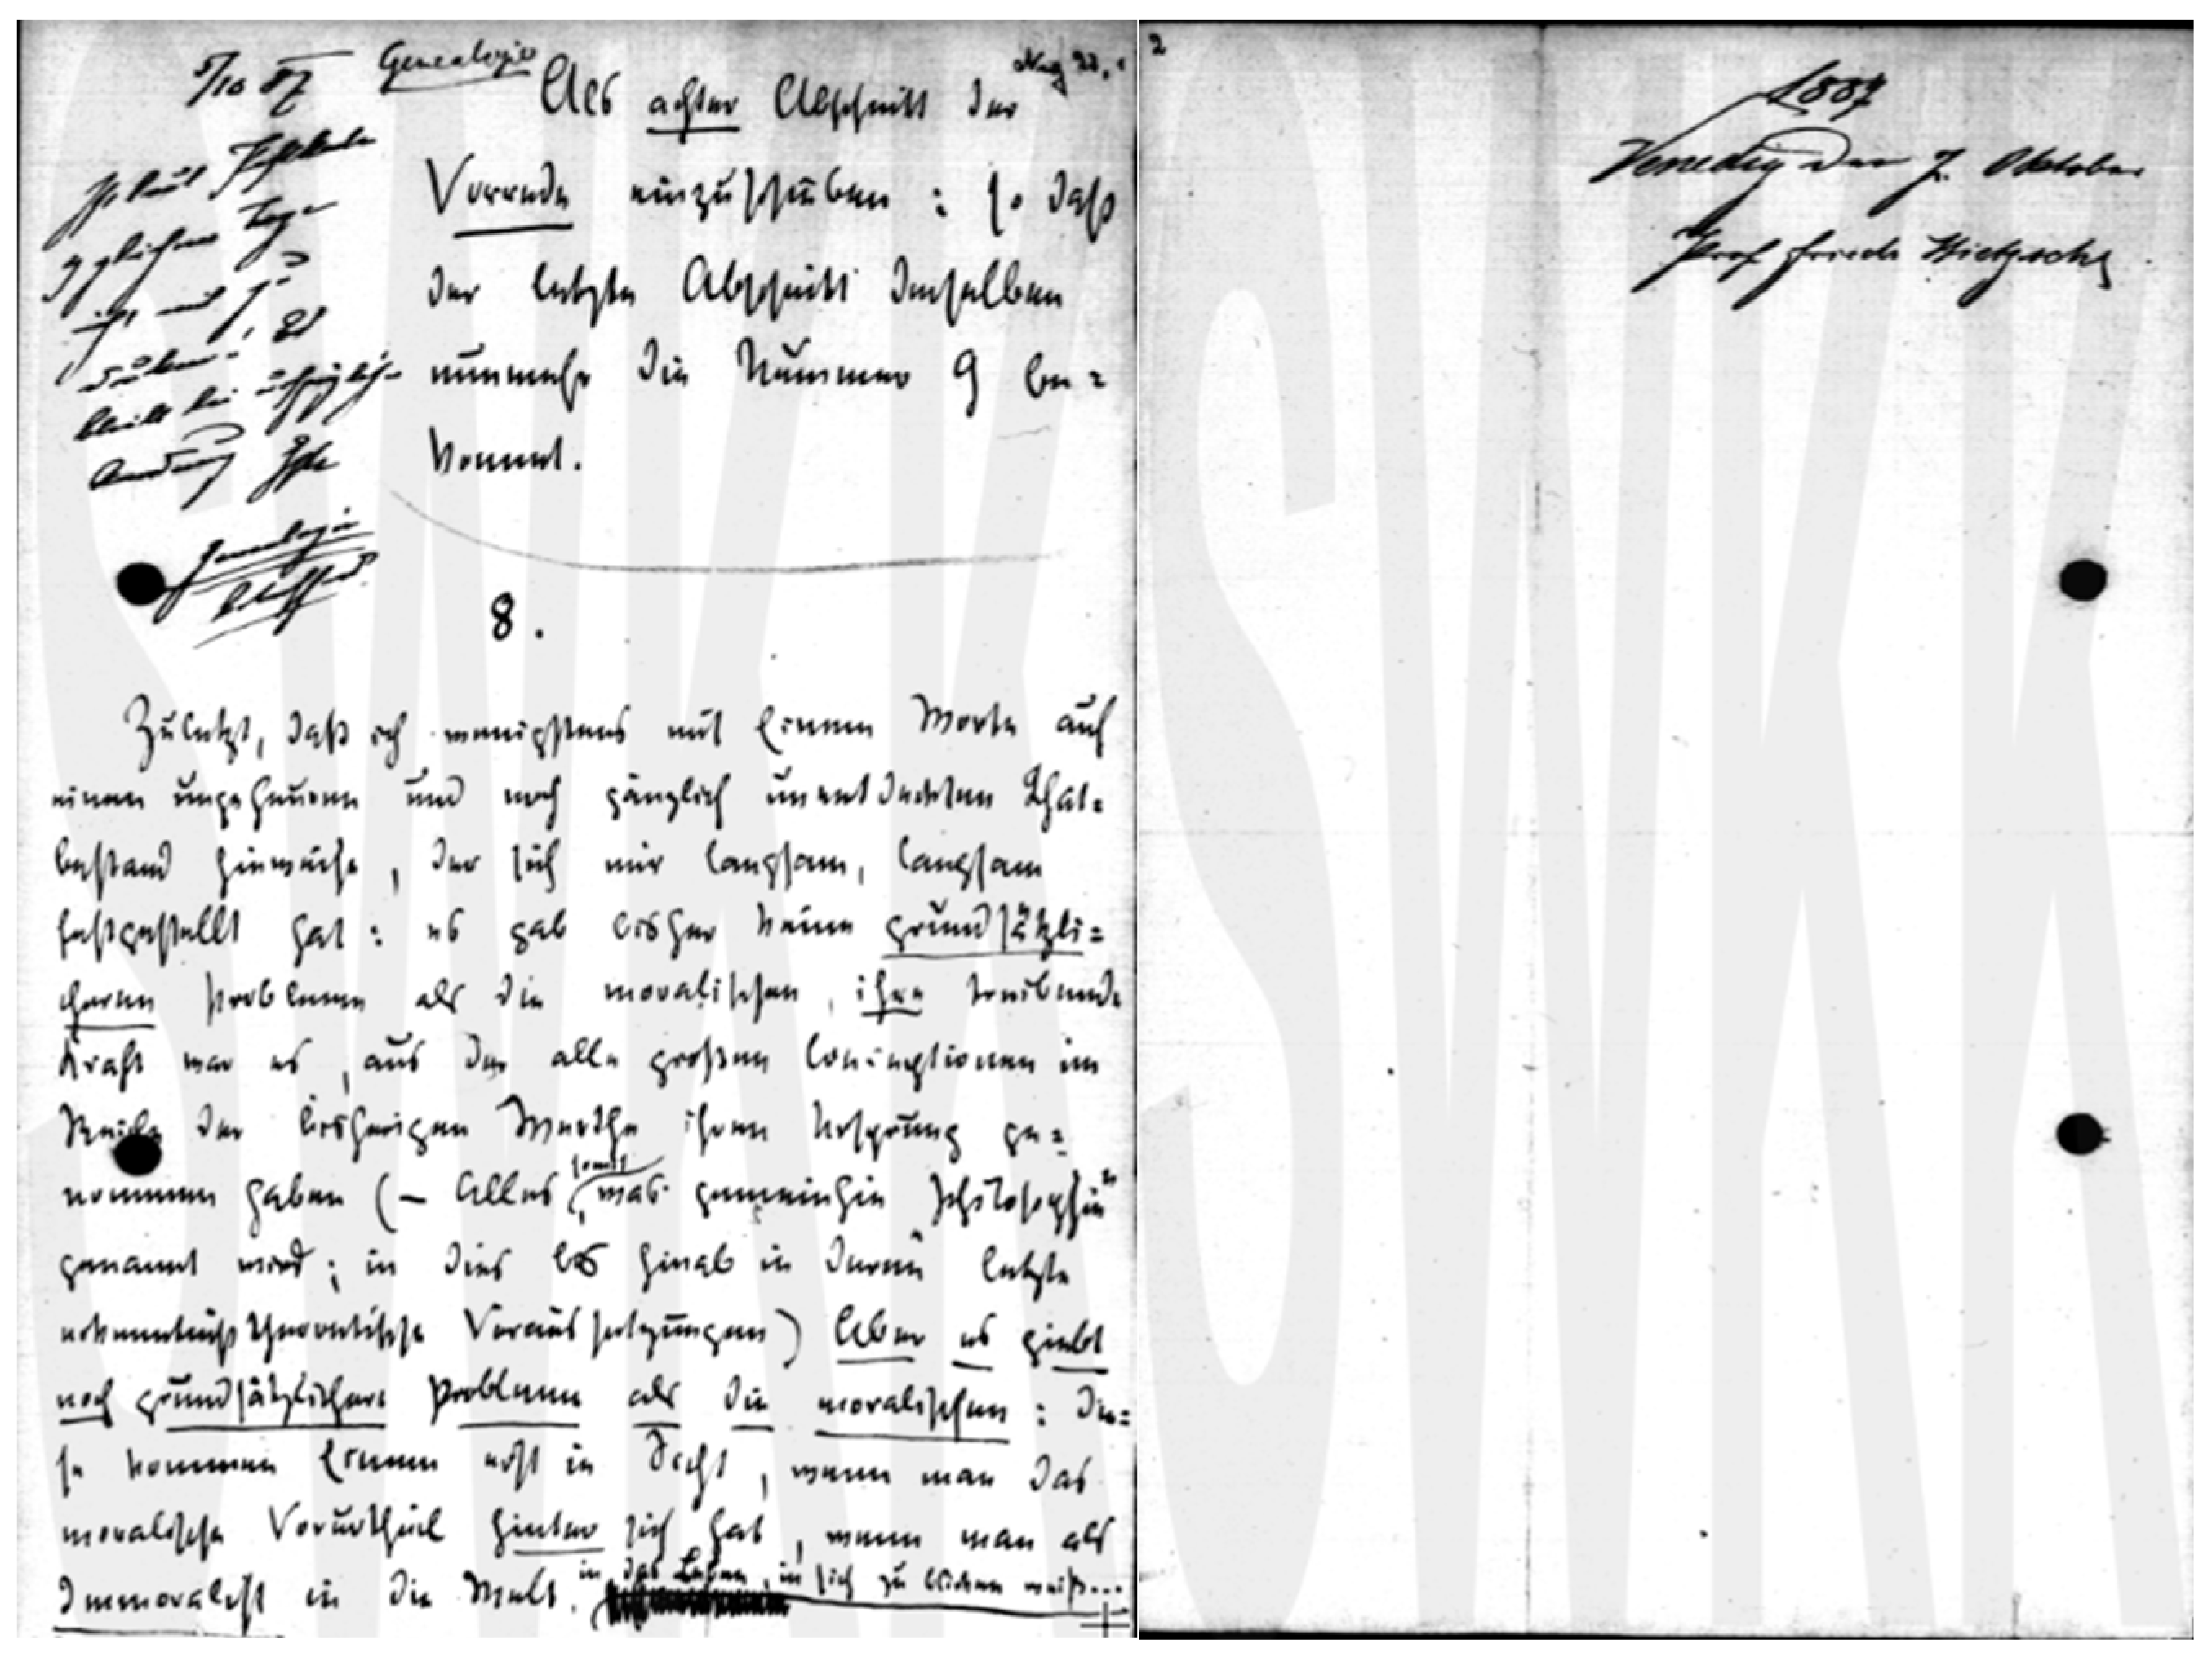 5/10 87 Genealogie
Als achter Abschnitt der
Vorrede einzuschieben: so daß
der letzte Abschnitt derselben
nunmehr die Nummer 9 be=
kommt.
bleibt bei
Genealogie
8.
Zuletzt, daß ich wenigstens mit Einem Worte auf
einen ungeheuren und noch gänzlich unentdeckten That=
bestand hinweise, der sich mir langsam, langsam
festgestellt hat: es gab bisher keine grundsätzli=
cheren Probleme als die moralischen, ihre treibende
Kraft war es, aus der alle großen Conceptionen im
Reiche der bisherigen Werthe ihren Ursprung ge=
nommen haben (— Alles somit was gemeinhin „Philosophie“
genannt wird; in dies bis hinab in deren letzte
erkenntnißtheoretische Voraussetzungen) Aber es giebt
noch grundsätzlichere Probleme als die moralischen: die=
se kommen Einem erst in Sicht, wenn man das
moralische Vorurtheil hinter sich hat, wenn man als
Immoralist in die Welt, in das Leben, in sich zu blicken weiß...
2
1887
Venedig den 7. Oktober
Prof Friedr Nietzsche
SWKK
SWKK